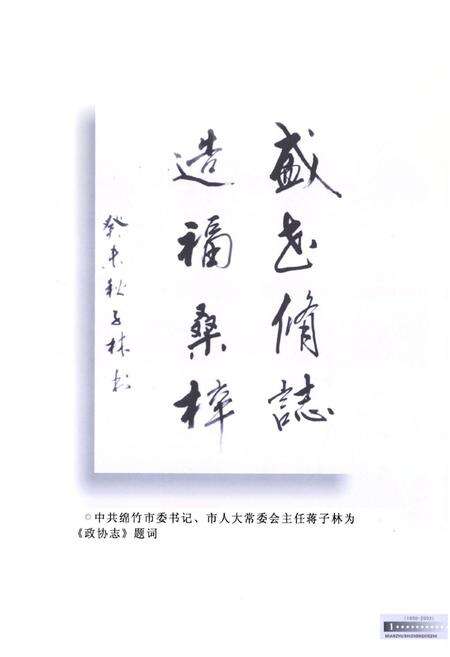 盛世修誌
造福桑梓
癸未秋子林书
©中共绵竹市委书记、市人大常委会主任蒋子林为
《政协志》题词
(1950-2003)
1
MIANZHUSHIZHENGXIEZHI